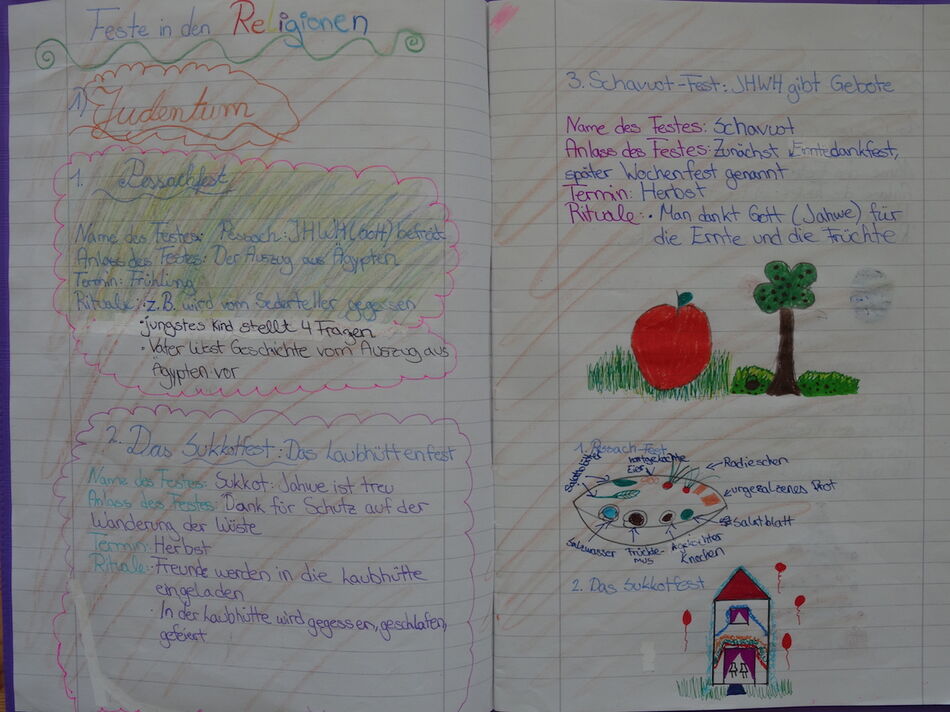 Feste in den Religionen
1) Judentum
1. Pessachfest
Name des Festes: Pessach: JHWH (Gott) befreit
Anlass des Festes: Der Auszug aus Ägypten
Termin: Frühling
Rituale: · z.B. wird vom Sederteller gegessen
· jüngstes Kind stellt 4 Fragen
· Vater liest Geschichte vom Auszug aus
Ägypten vor
2. Das Sukkotfest: Das Laubhüttenfest
Name des Festes: Sukkot: Jahwe ist treu
Anlass des Festes: Dank für Schutz auf der
Wanderung der Wüste
Termin: Herbst
Rituale: · Freunde werden in die Laubhütte
eingeladen
· In der Laubhütte wird gegessen, geschlafen,
gefeiert
3. Schavuot-Fest: JHWH gibt Gebote
Name des Festes: Schavuot
Anlass des Festes: Zunächst Erntedankfest,
später Wochenfest genannt
Termin: Herbst
Rituale: · Man dankt Gott (Jahwe) für
die Ernte und die Früchte
1. Pessach-Fest
hartgekochte
Eier
Radieschen
ungesalzenes Brot
Salatblatt
Salzwasser
Früchte-
mus
Knochen
2. Das Sukkotfest